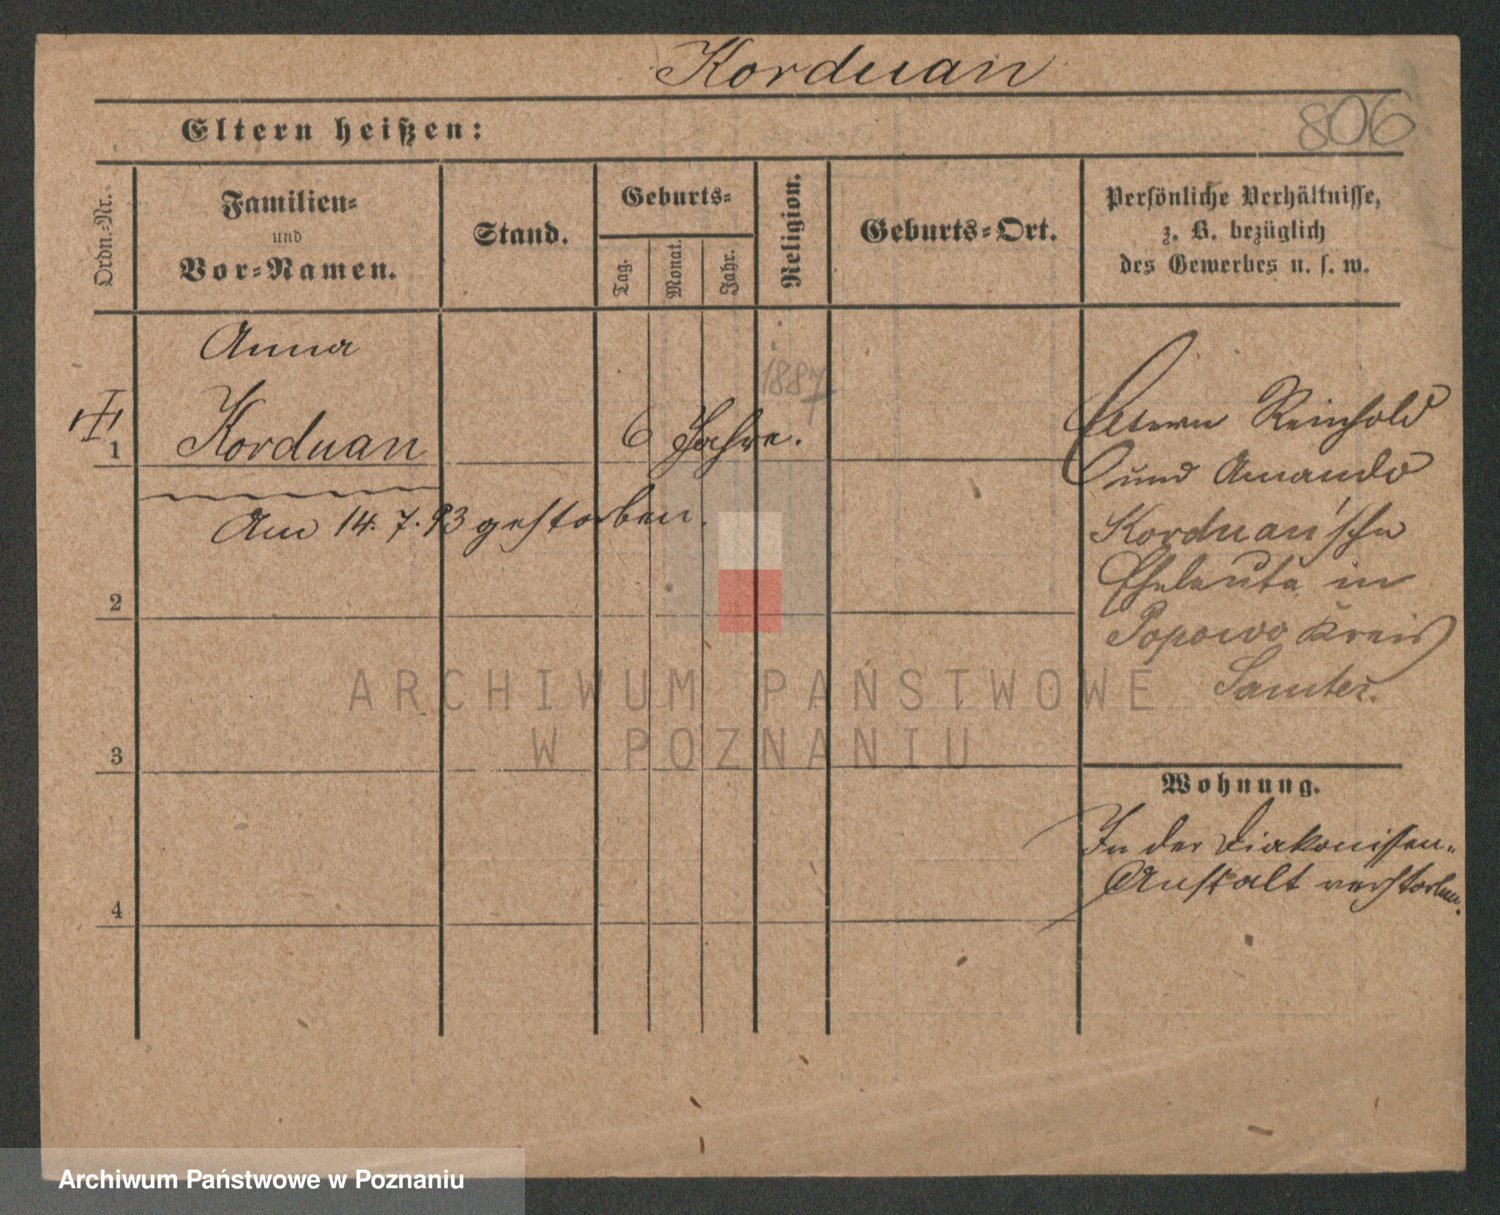 Korduan
806
Eltern heißen:
Ordn.-Nr.
Familien-
und
Vor-Namen.
Stand.
Geburts-
Tag.
Monat.
Jahr.
Religion.
Geburts-Ort.
Persönliche Verhältnisse,
z. B. bezüglich
des Gewerbes u. s. w.
1887
Anna
1 Korduan 6 Jahre.
Am 14. 7. 93 gestorben.
Eltern Reinhold
und Amanda
Korduan'sche
Eheleute in
Popowo Kreis
Samter.
2
3
4
Wohnung.
In der Diakonissen-
Anstalt verstorben.
ARCHIWUM PAŃSTWOWE
W POZNANIU
Archiwum Państwowe w Poznaniu